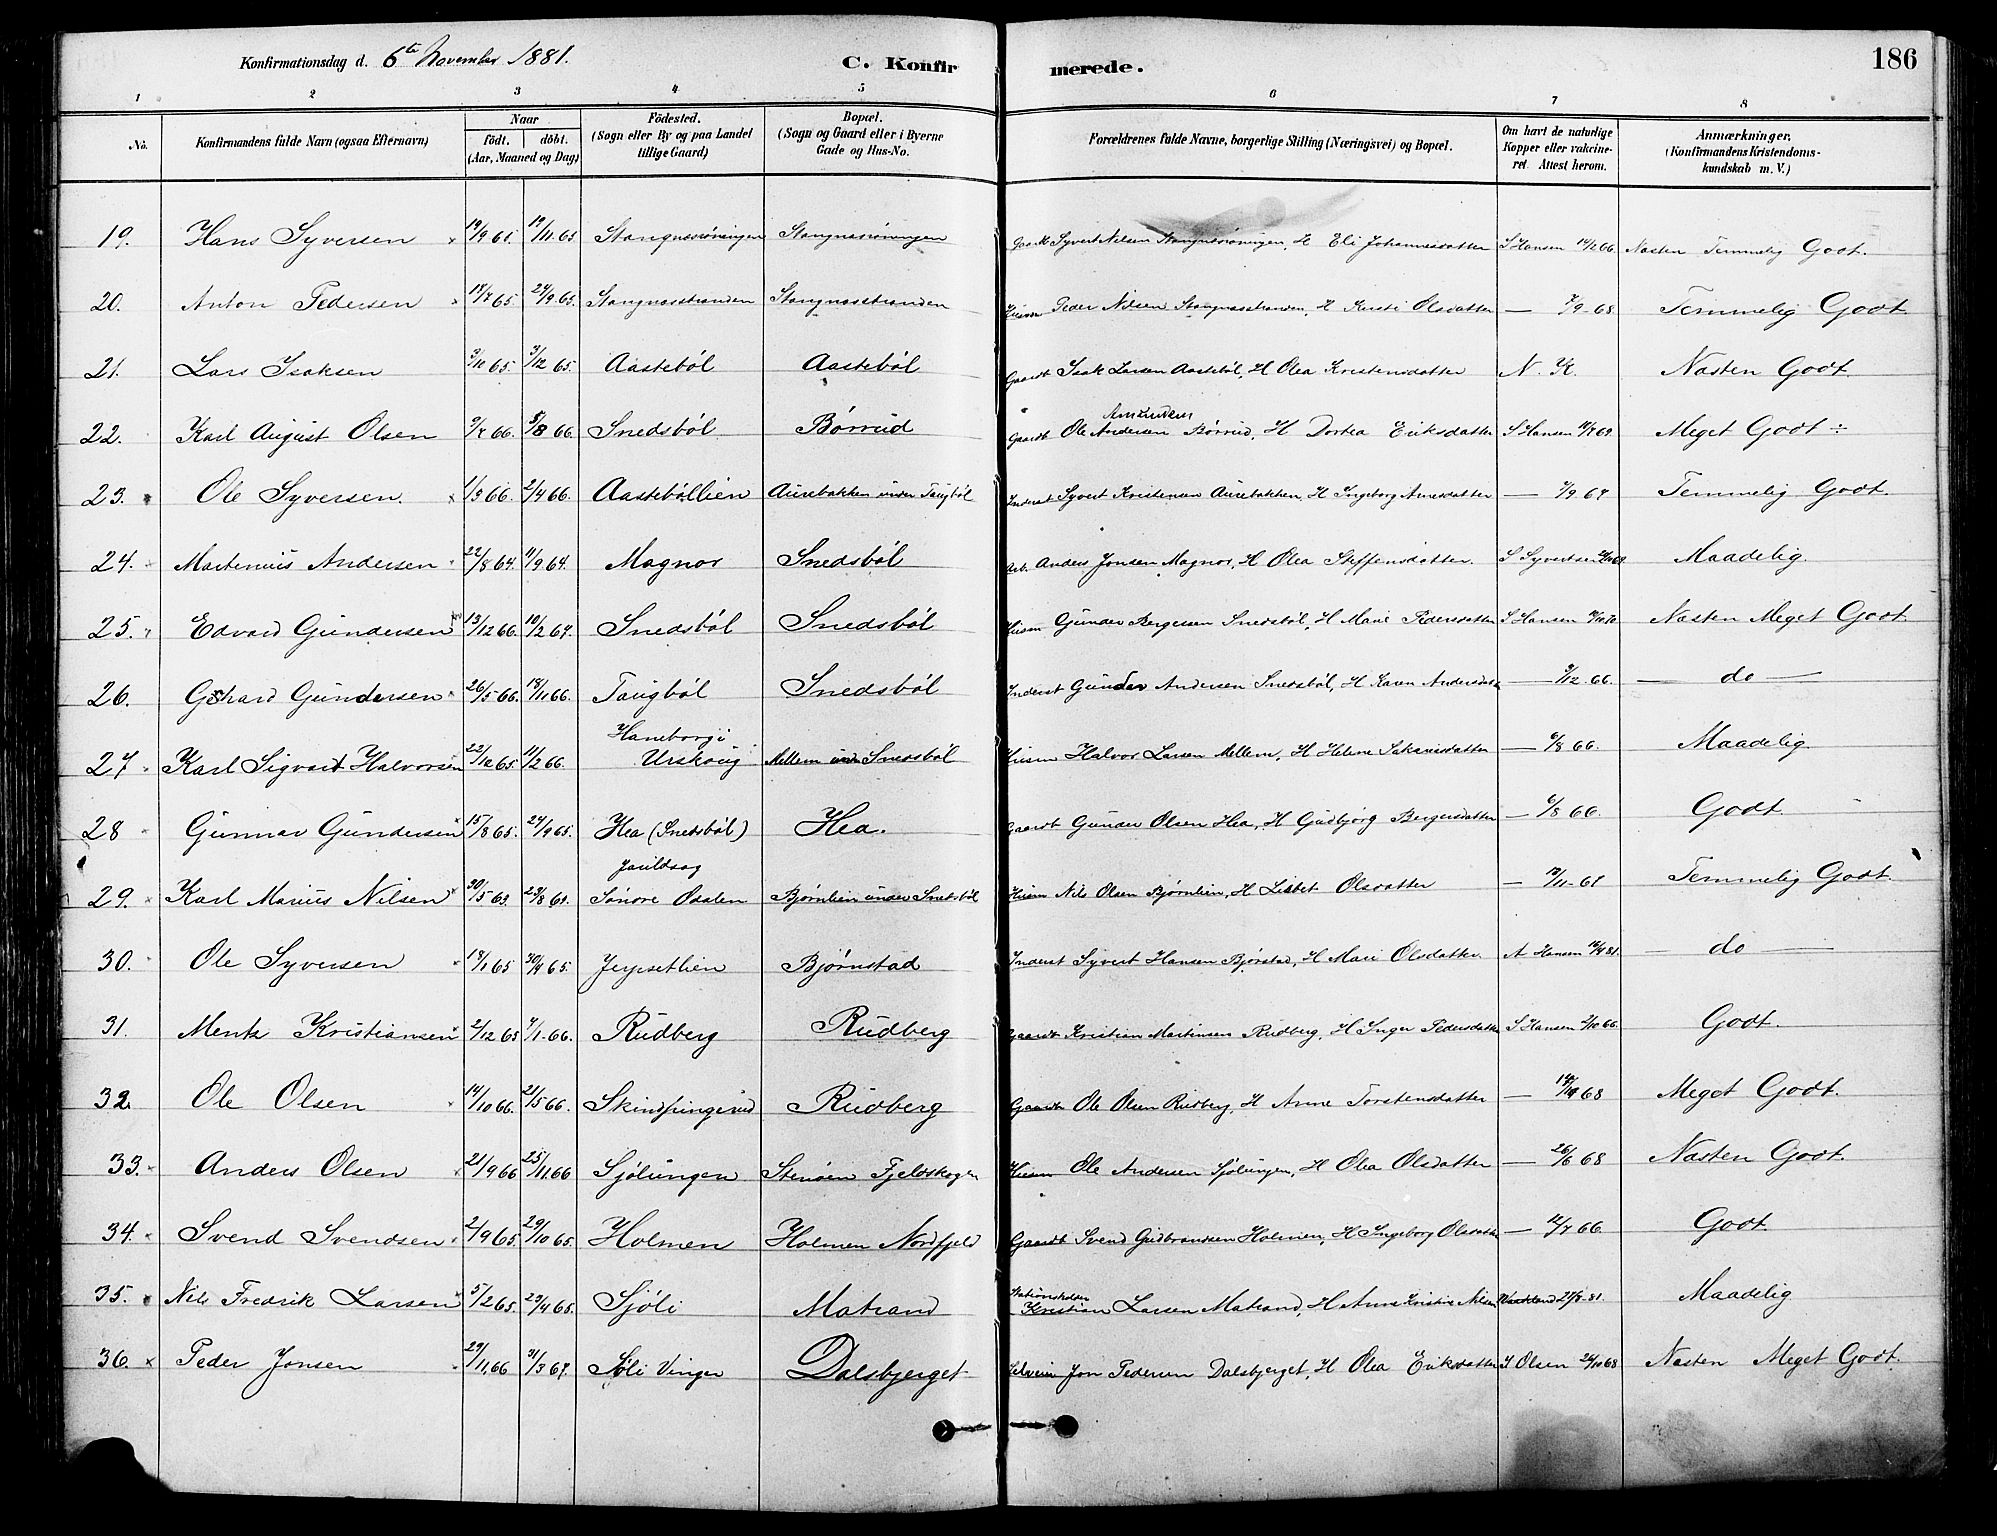 Konfirmationsdag d. 6te November 1881. C. Konfirmerede. 186
1 2 3 4 5 6 7 8
No. Konfirmandens fulde Navn (ogsaa Efternavn) Naar födt. döbt. (Aar, Maaned og Dag) Födested. (Sogn eller By og paa Landet tillige Gaard) Bopæl. (Sogn og Gaard eller i Byerne Gade og Hus-No. Forældrenes fulde Navne, borgerlige Stilling (Næringsvei) og Bopæl. Om havt de naturlige Kopper eller vakcineret. Attest herom. Anmærkninger. (Konfirmandens Kristendomskundskab m. V.)
19. Hans Syversen 19/11 65 Stangnæsröningen Stangnæsröningen Syvert Nilsen Stangnæsröningen, H Eli Johannesdatter S Hansen 14/12 66. Næsten Temmelig Godt.
20. Anton Pedersen 18/7 65. 24/9 65. Stangnæsstranden Stangnæsstranden Husm Peder Nilsen Stangnæsstranden, H Kersti Olsdatter — 7/9-68. Temmelig Godt
21. Lars Isaksen 3/10 65. 3/12 65. Aasteböl Aasteböl Gaardb Isak Larsen Aasteböl, H Olea Kristensdatter N. K. Næsten Godt
22. Karl August Olsen 9/7 66. 5/8 66. Snedsböl Börrud Gaardb Ole Amundsen Andersen Börrud, H Dortea Eriksdatter S Hansen Meget Godt ÷
23. Ole Syversen 1/3 66. 2/4 66. Aasteböllien Aurebakken under Taugböl Inderst Syvert Kristensen Aurebakken, H Ingeborg Arnesdatter — 7/9 67 Temmelig Godt.
24. Martenius Andersen 22/8 64. 11/9 64. Magnor Snedsböl Arb. Anders Jonsen Magnor, H Olea Steffensdatter. S Syvertsen Maadelig.
25. Edvard Gundersen 13/12 66. 10/2 67. Snedsböl Snedsböl Husm Gunder Bergesen Snedsböl, H Marie Pedersdatter S Hansen Næsten Meget Godt
26. Gerhard Gundersen 26/5 66. 18/11 66. Taugböl Snedsböl Inderst Gunder Andersen Snedsböl, H Karen Andersdatter — 9/12-66. — do —
27. Karl Sigvart Halvorsen 22/12 65. 11/2 66. Haneborg i Urskoug Mellem under Snedsböl Husm Halvor Larsen Mellem, H Helene — 6/8 66. Maadelig
28 Gunnar Gundersen 15/8 65. 24/9 65. Hea (Snedsböl) Hea. Gaardb Gunder Olsen Hea, H Gudbjörg Bergersdatter — 6/8 66. Godt
29. Karl Marius Nilsen 30/5 63. 23/8 63. Söndre Odalen Björnlien under Snedsböl Husm Nils Olsen Björnlien, H Lisbet Olsdatter Temmelig Godt
30. Ole Syversen 18/1 65 30/4 65. Jerpsetlien Björnstad Inderst Syvert Hansen Björstad, H Mari Olsdatter A Hansen — do —
31. Mentz Kristiansen 2/12 65 7/1-66. Rudberg Rudberg Gaardb Kristian Martinsen Rudberg, H Inger Pedersdatter S Hansen 2/10 66. Godt.
32. Ole Olsen 14/10 66. 21/5 66. Skindpungrud Rudberg Gaardb Ole Olsen Rudberg, H Anne Torstensdatter — 68 Meget Godt.
33. Anders Olsen 21/9 66 25/11.66 Sjölungen Stensöen Fjeldskogen Husm Ole Andersen Sjölungen, H Olea Olsdatter — 26/6 68 Næsten Godt.
34. Svend Svendsen 2/9 65. 29/10 65. Holmen Holmen Nordfjeld Gaardb Svend Gudbrandsen Holmen, H Ingeborg Olsdatter — 12/7 66. Godt
35. Nils Fredrik Larsen 5/2 65. 23/4 65. Sjöli Matrand Kristian Larsen Matrand, H Anne Kristine Nilsen 27/8-81. Maadelig
36. Peder Jonsen 29/11 66 31/3 67. Söli Vinger Dalsbjerget Selveier Jon Pedersen Dalsbjerget, H Olea Eriksdatter S Olsen 24/10 68 Næsten Meget Godt.